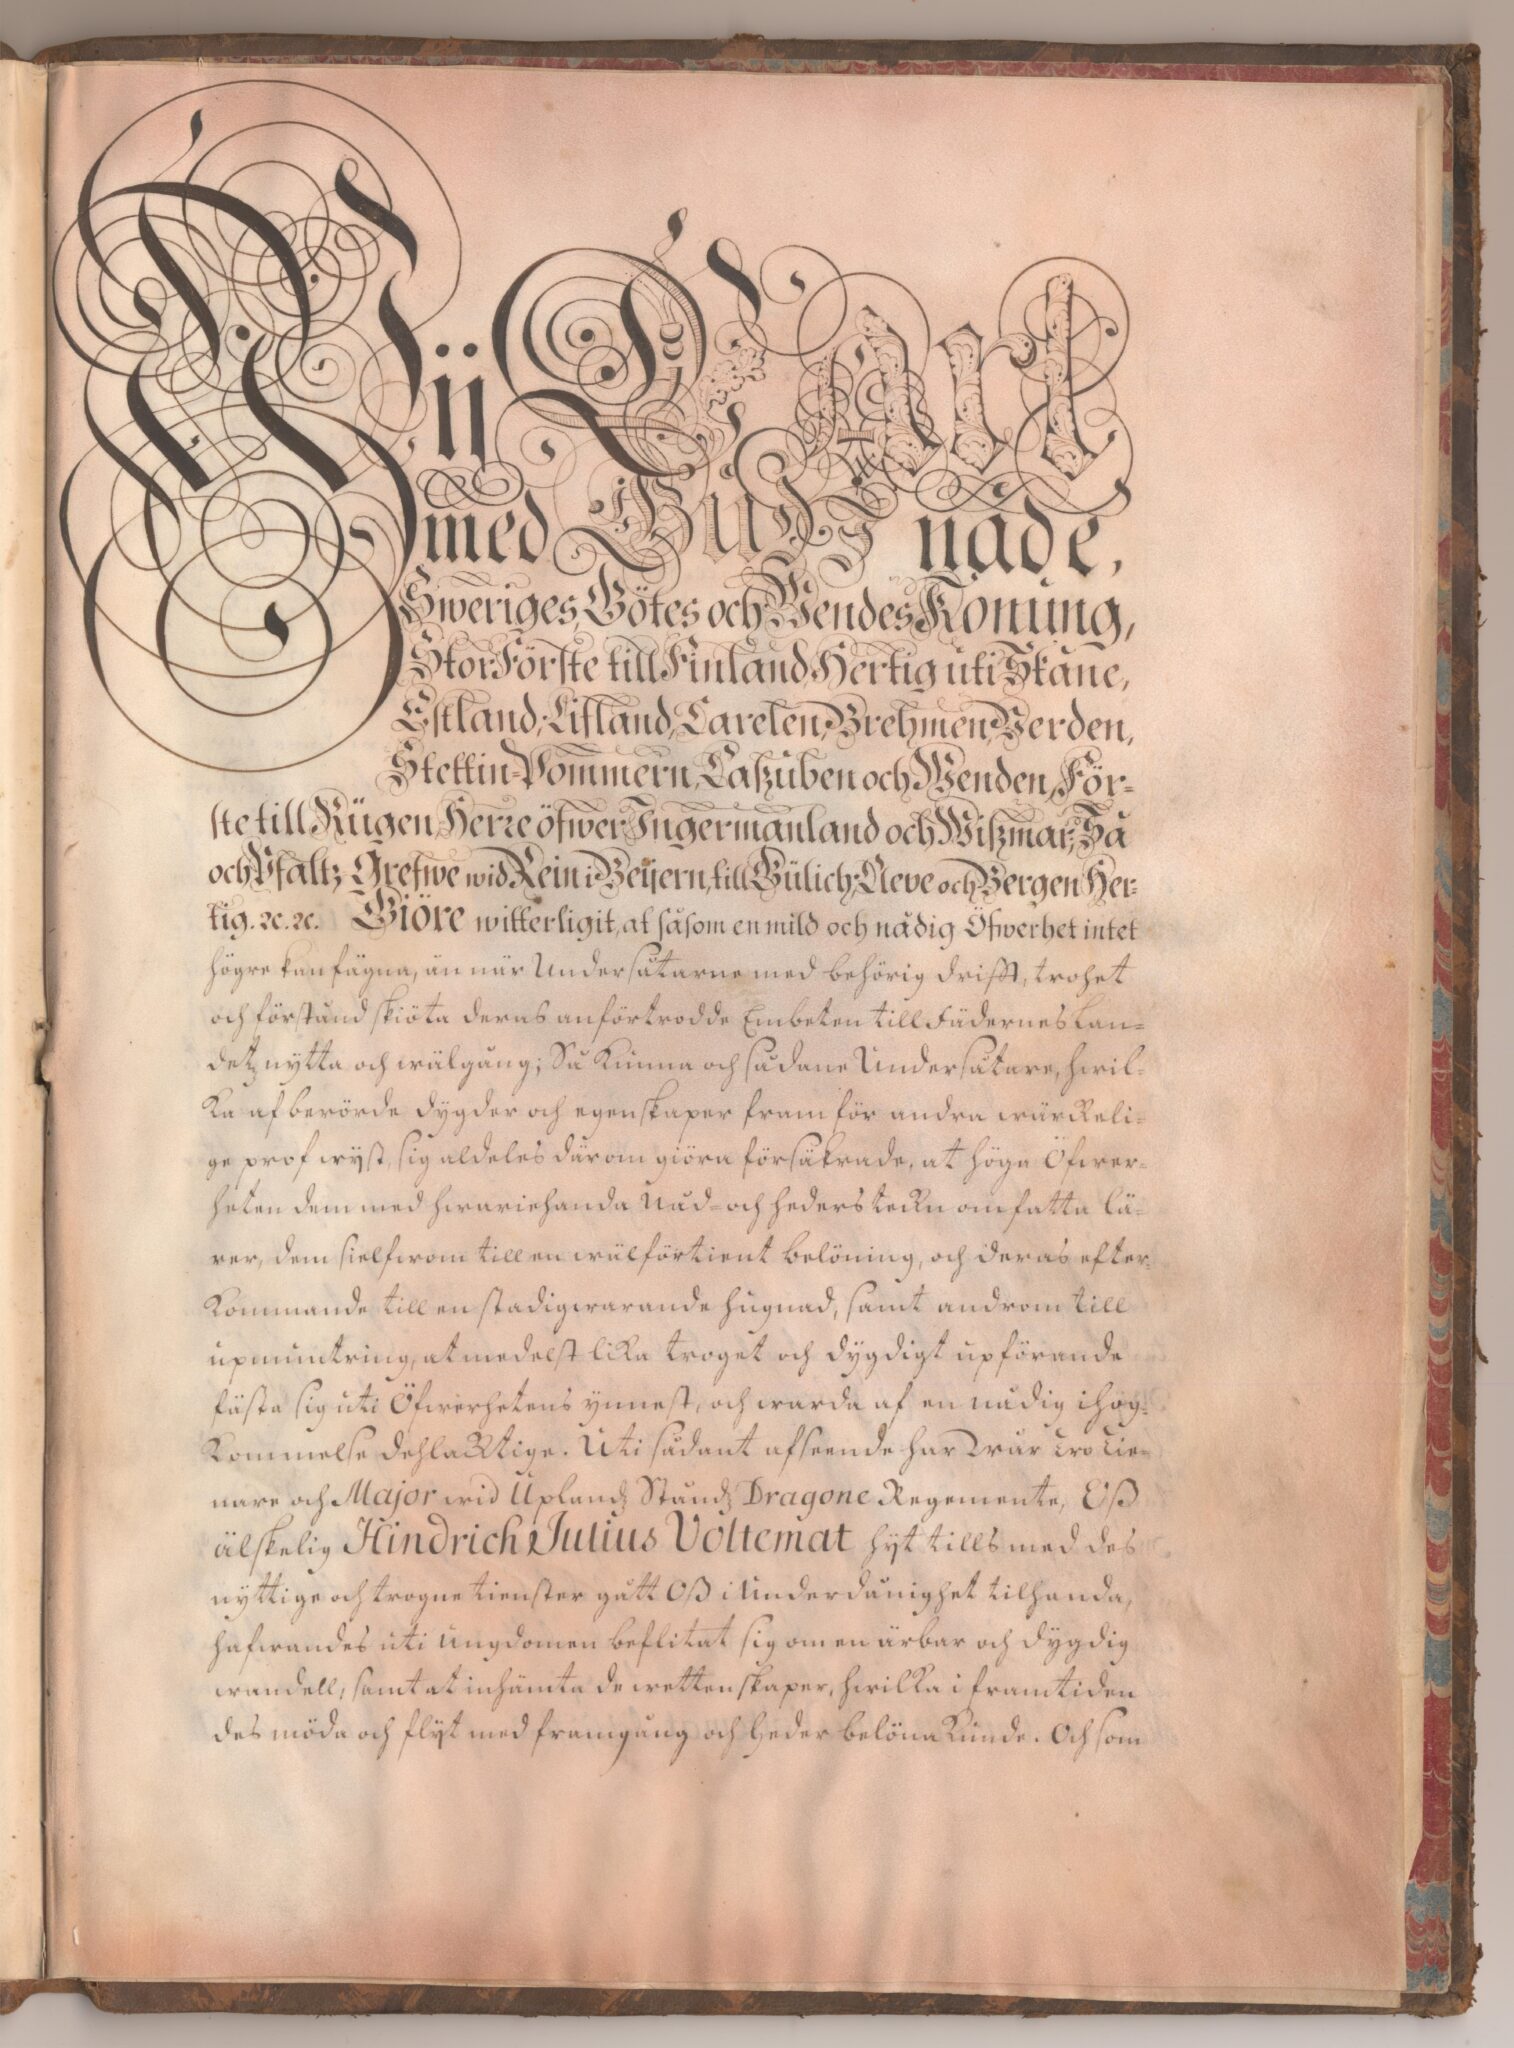 Wii Carl
med Gudz nåde,
Sweriges, Götes och Wendes Konung,
StorFörste till Finland, Hertig uti Skåne,
Estland, Lifland, Carelen, Brehmen, Verden,
Stettin-Pommern, Caszuben och Wenden, För-
ste till Rügen, Herre öfwer Ingermanland och Wiszmar; Så
och Pfaltz Grefwe wid Rein i Beijern, till Gülich, Cleve och Bergen Her-
tig. 2c. 2c. Giöre witterligit, at såsom en mild och nådig Öfwerhet intet
högre kan fägna, än när Undersåtarne med behörig drifft, trohet
och förstånd skiöta deras anförtrodde Embeten till Fädernes Lan-
detz nytta och wälgång; Så kunna och sådane Undersåtare, hwil-
ka af berörde dygder och egenskaper framför andra wärkeli-
ge prof wyst, sig aldeles därom giöra försäkrade, at höga Öfwer-
heten dem med hwariehanda Nåd- och heders tekn omfatta lä-
rer, dem sielfwom till en wälförtient belöning, och deras efter-
kommande till en stadigwarande hugnad, samt androm till
upmuntring, at medelst lika troget och dygdigt upförande
fästa sig uti Öfwerhetens ynnest, och warda af en nådig ihog-
kommelse dehlacktige. Uti sådant afseende har wår tro tie-
nare och Major wid Uplandz Ståndz Dragone Regemente, Oß
älskelig Hindrich Julius Voltemat hyt tills med des
nyttige och trogne tienster gått Oß i Underdånighet tilhanda,
hafwandes uti ungdomen beflitat sig om en ärbar och dygdig
wandell, samt at inhämta de wettenskaper, hwilka i framtiden
des möda och flyt med framgång och heder belöna kunde. Och som